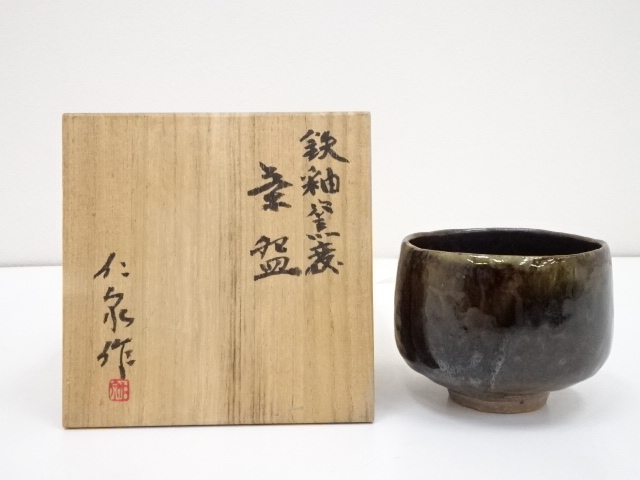 鉄釉窯変
茶盌
仁泉作